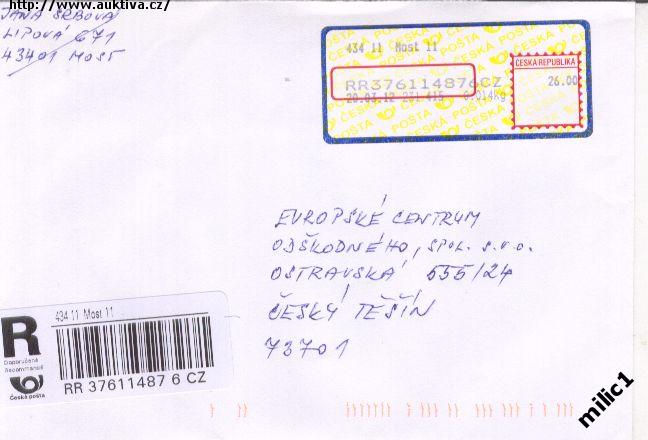 http://www.auktiva.cz/
JANA SRBOVÁ
LIPOVÁ 671
43401 MOST
434 11 Most 11
ČESKÁ REPUBLIKA
RR376114876CZ
26.00
20.03.12 231 415 0.014kg
ČESKÁ POŠTA
EVROPSKÉ CENTRUM
ODŠKODNÉHO, SPOL. S.R.O.
OSTRAVSKÁ 555/24
ČESKÝ TĚŠÍN
73701
434 11 Most 11
R
Doporučeně
Recommandé
Česká pošta
RR 37611487 6 CZ
milic1